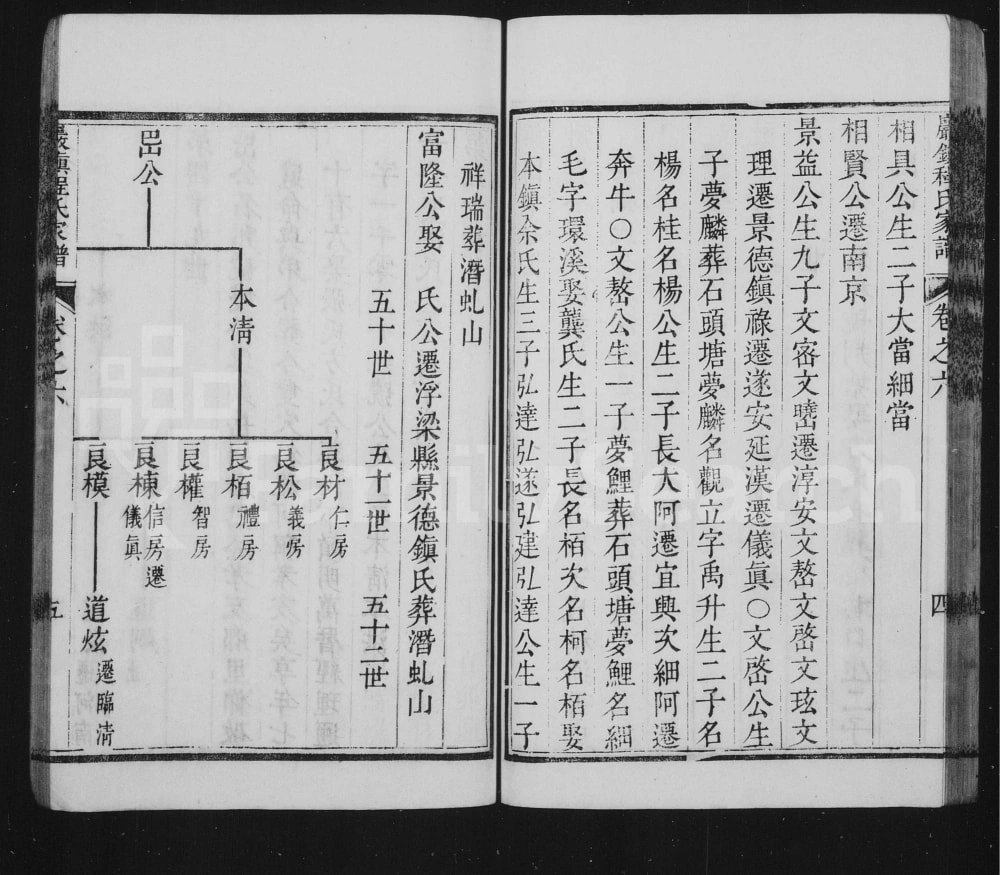 巖鎮程氏家譜 卷之六 四
相具公生二子大當細當
相賢公遷南京
景益公生九子文宻文曉遷淳安文嶅文啓文玹文
理遷景德鎮祿遷遂安延漢遷儀眞○文啓公生
子夢麟葬石頭塘夢麟名觀立字禹升生二子名
楊名桂名楊公生二子長大阿遷宜興次細阿遷
奔牛○文嶅公生一子夢鯉葬石頭塘夢鯉名綱
毛字環溪娶龔氏生二子長名栢次名柯名栢娶
本鎮余氏生三子弘達弘遂弘建弘達公生一子
祥瑞葬潛虬山
富隆公娶 氏公遷浮梁縣景德鎮氏葬潛虬山
五十世 五十一世 五十二世
岊公
本清
良材 仁房
良松 義房
良栢 禮房
良權 智房
良棟 信房遷儀眞
良模 道炫 遷臨清
巖鎮程氏家譜 卷之六 五